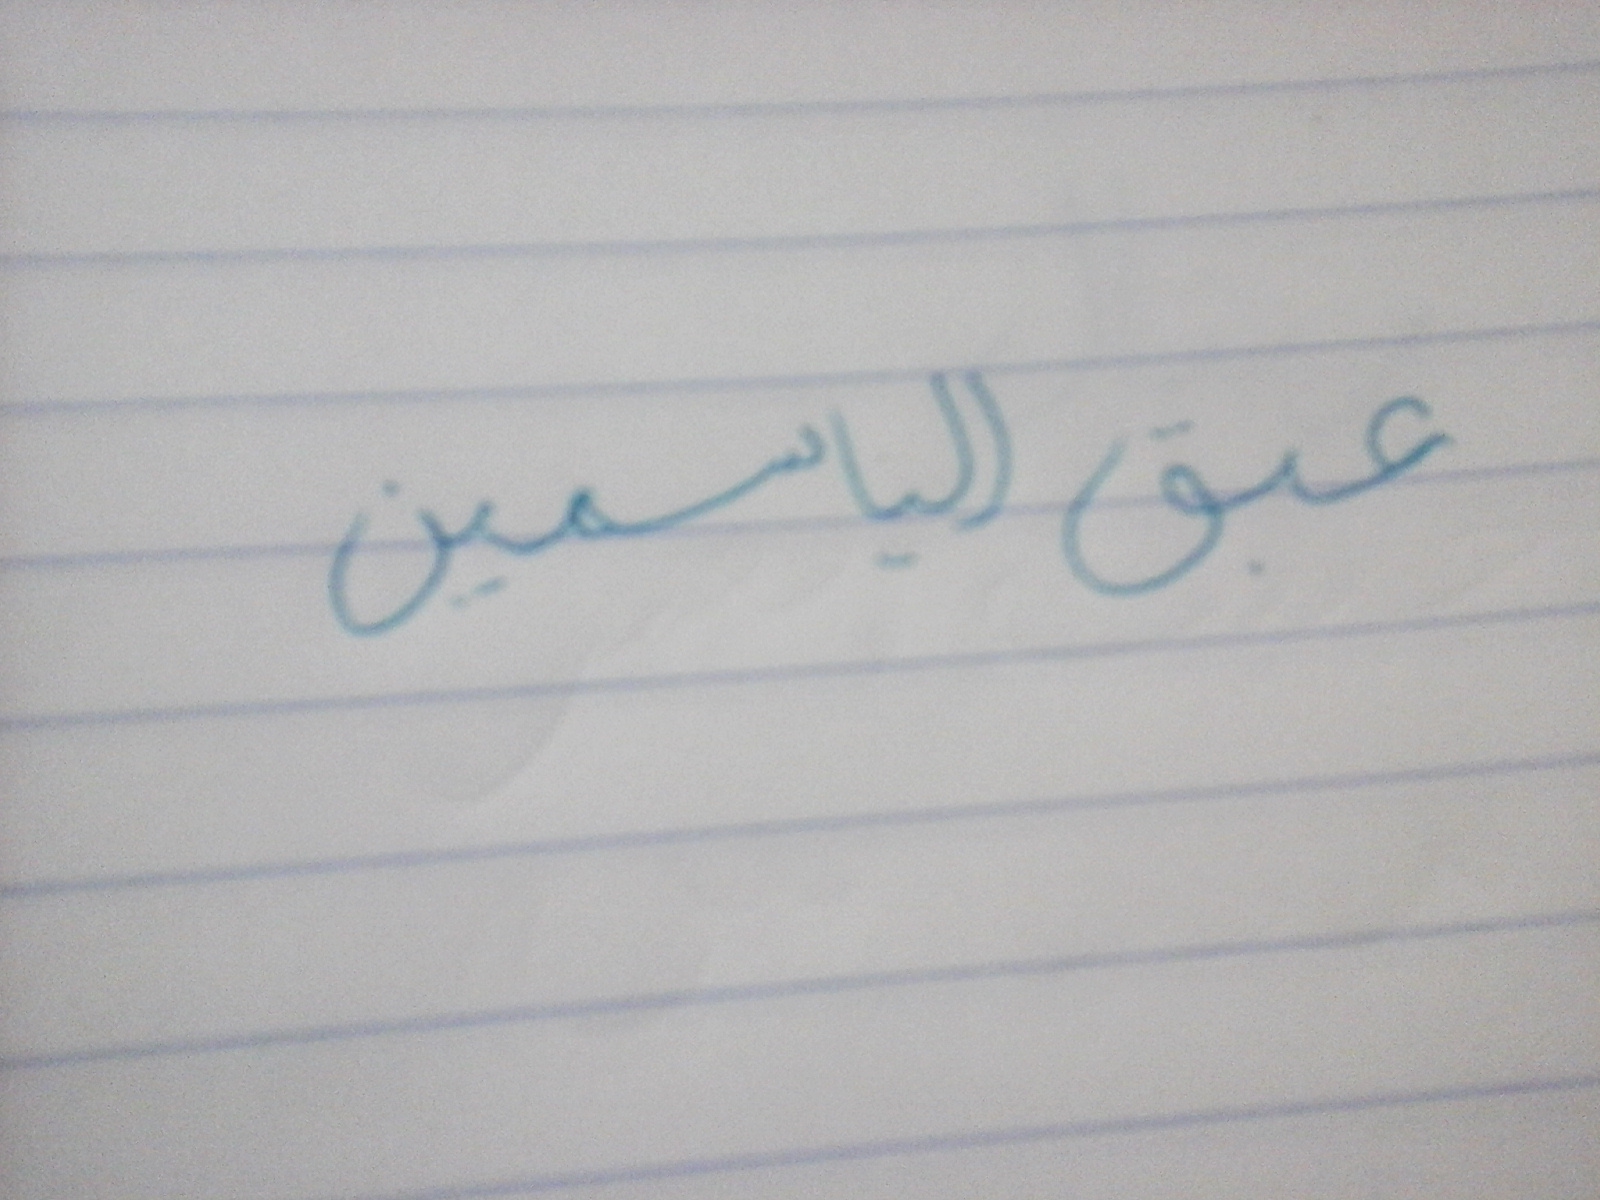 عبق الياسمين